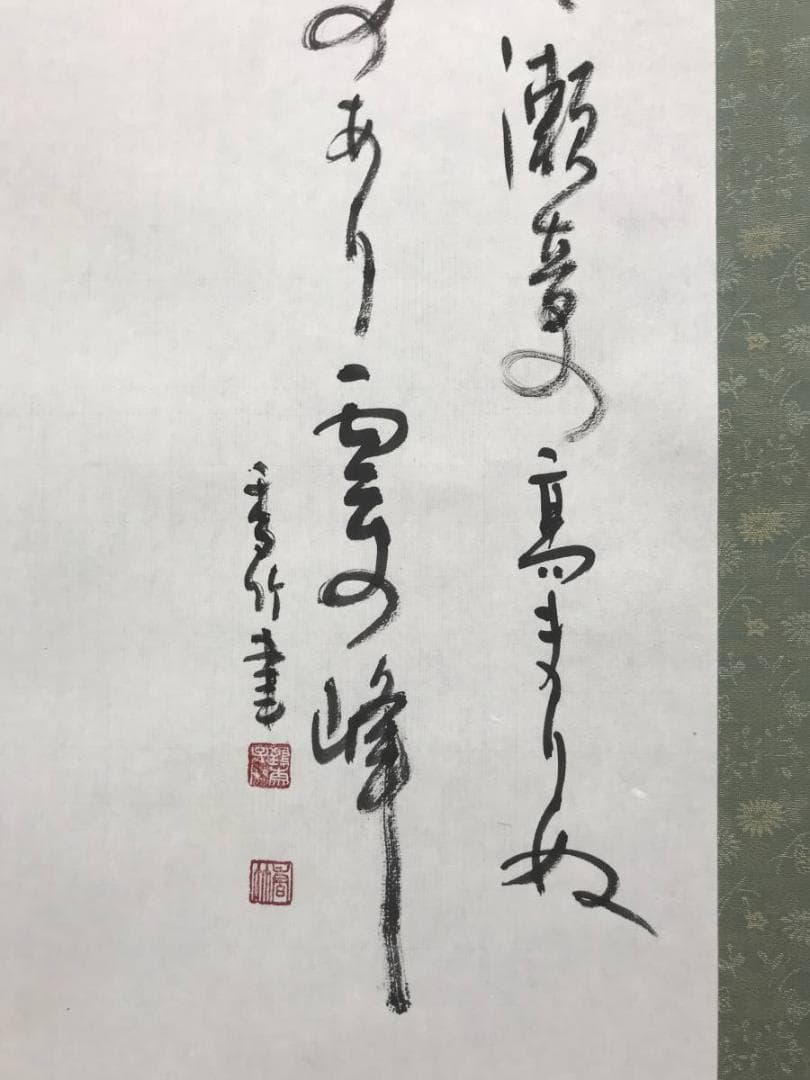 瀬音の高まりぬ
のあり雲の峰
香竹書